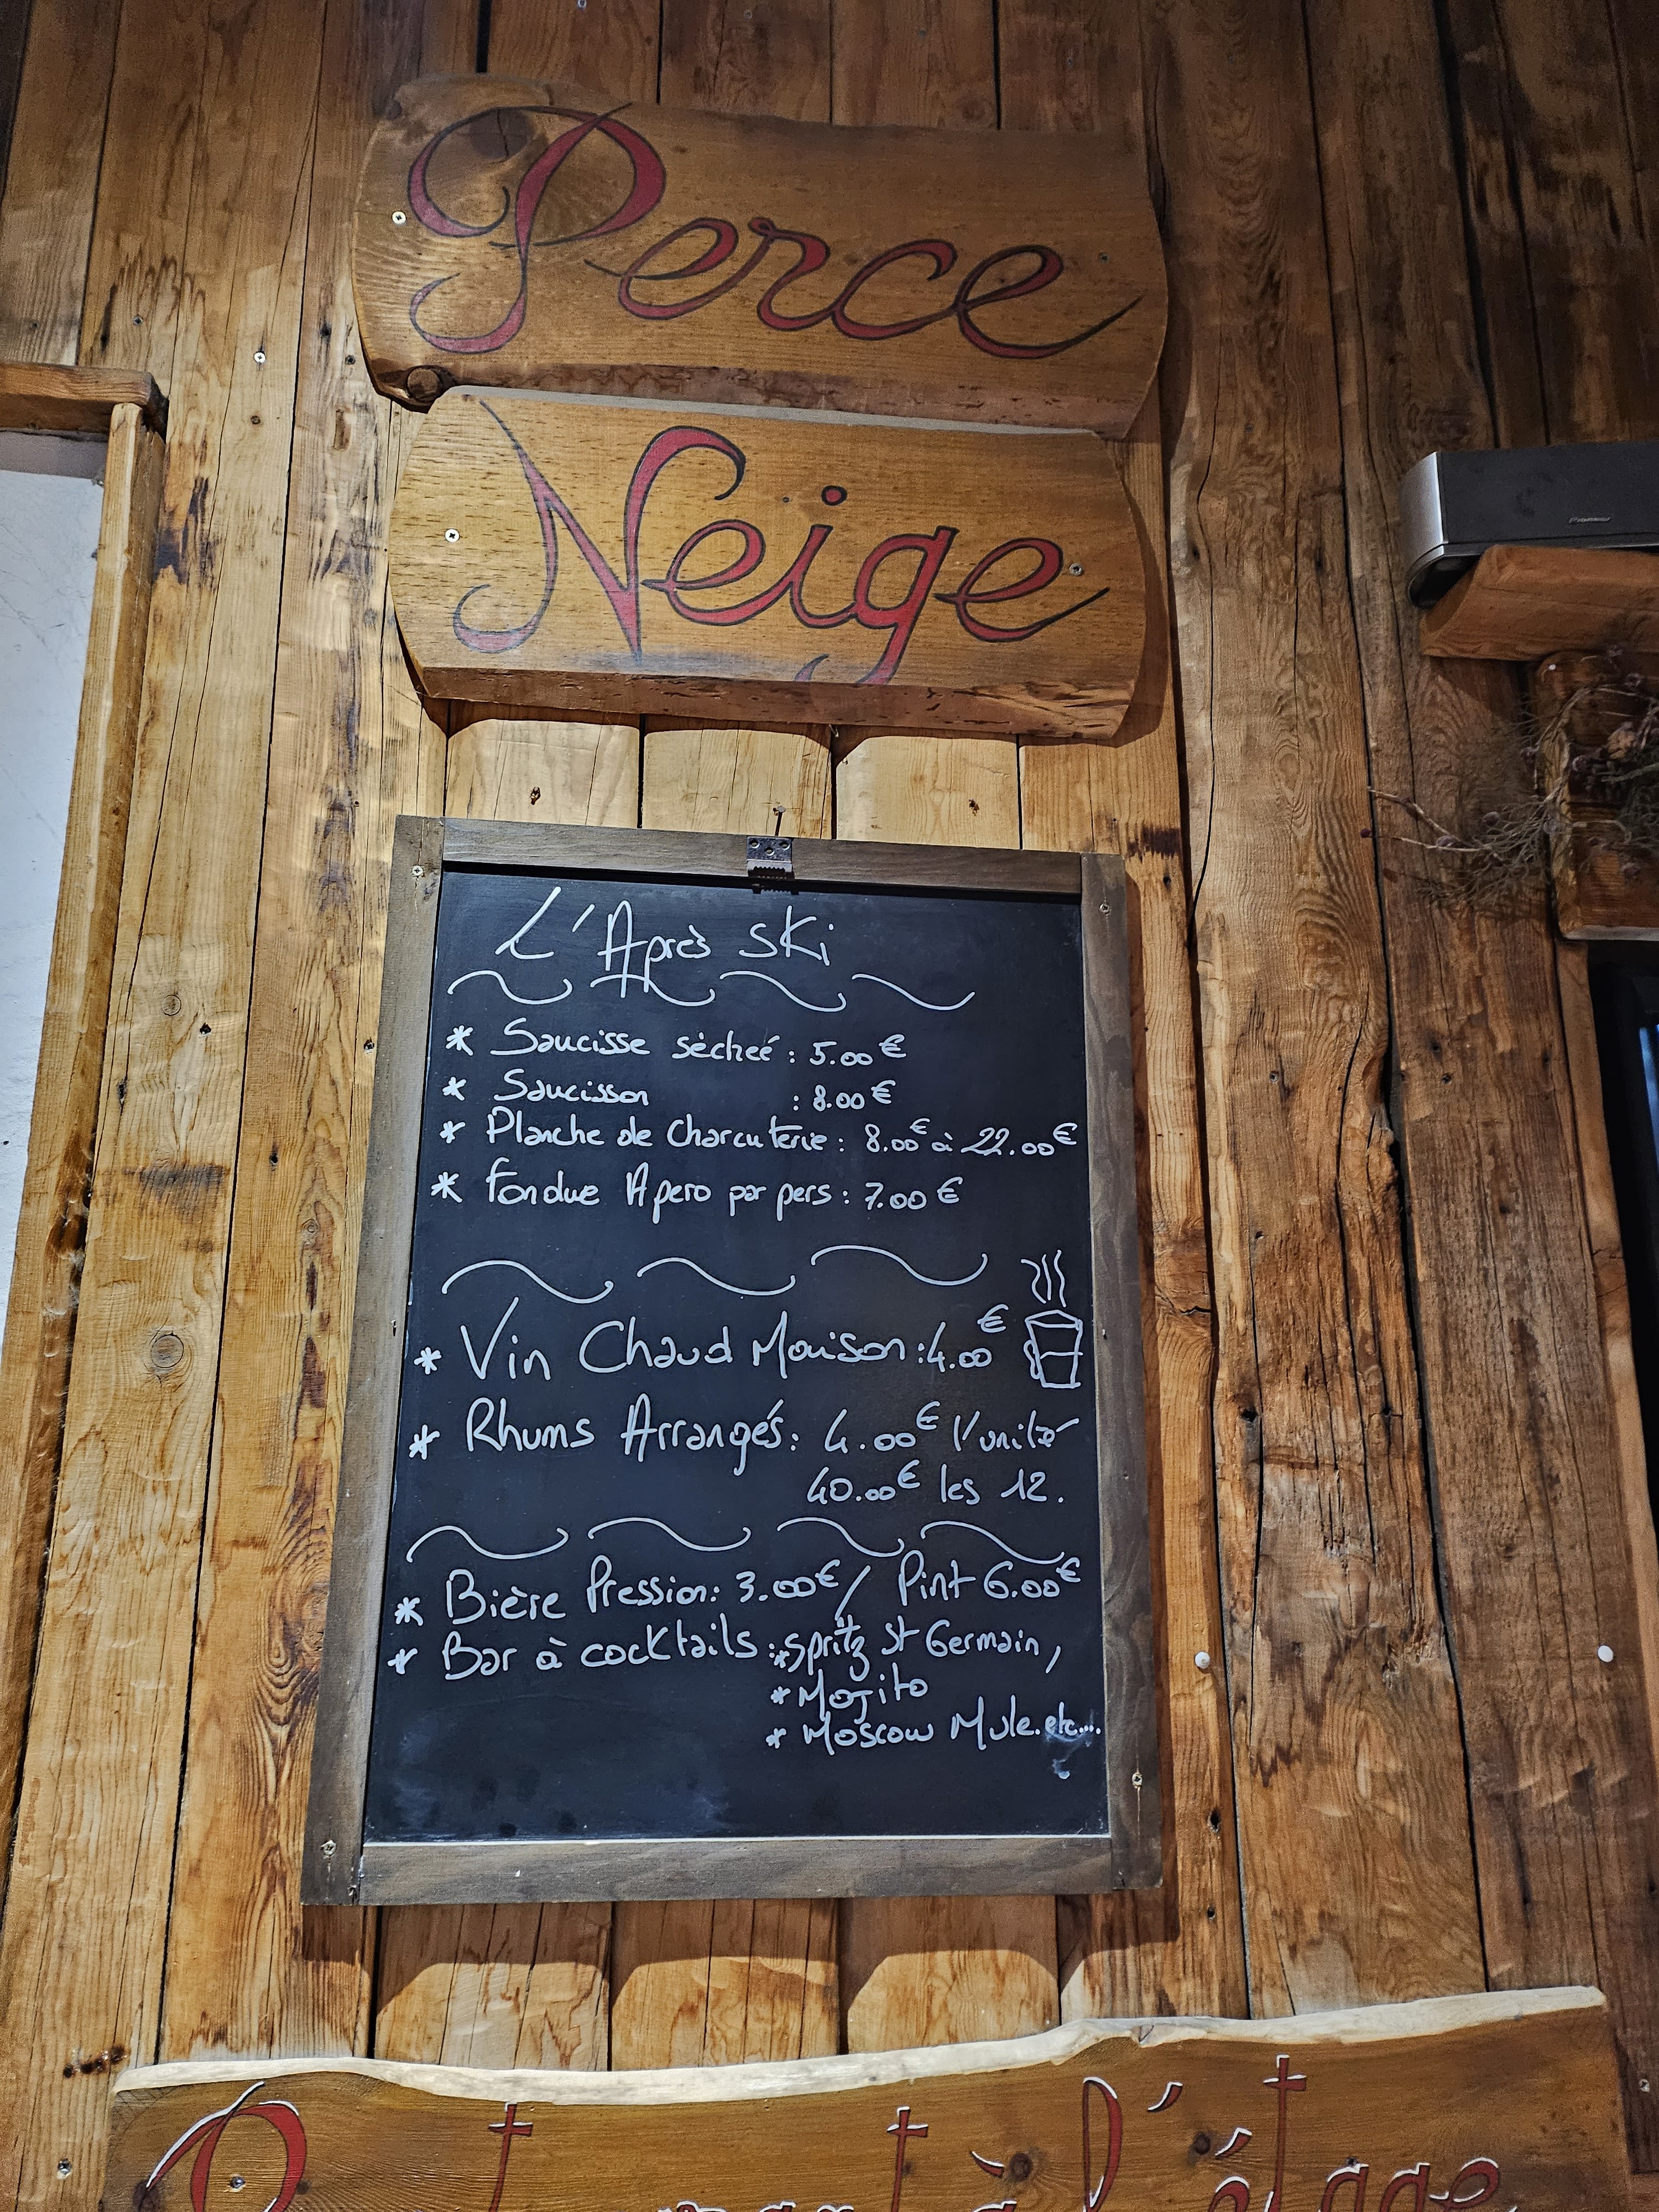 Perce
Neige
Pioneer
L'Après Ski
* Saucisse séchée : 5.00€
* Saucisson : 8.00€
* Planche de Charcuterie : 8.00€ à 22.00€
* Fondue Apero par pers : 7.00€
* Vin Chaud Maison : 4.00€
* Rhums Arrangés : 4.00€ l'unité
40.00€ les 12.
* Bière Pression : 3.00€ / Pint 6.00€
* Bar à cocktails : * Spritz St Germain,
* Mojito
* Moscow Mule. etc....
à l'étage